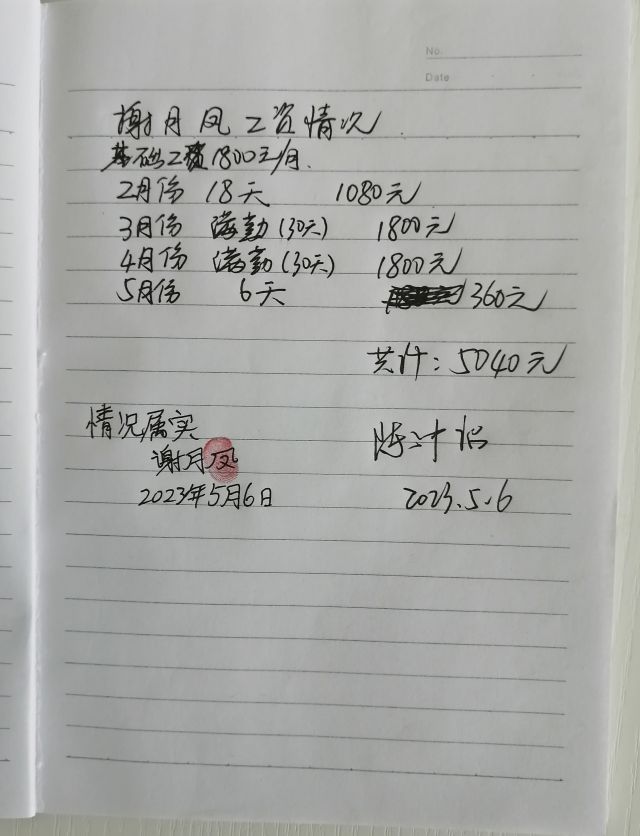 No.
Date
谢月凤工资情况
基础工资1800元/月.
2月份 18天 1080元
3月份 满勤(30天) 1800元
4月份 满勤(30天) 1800元
5月份 6天 360元
共计:5040元
情况属实
谢月凤
2023年5月6日
2023.5.6